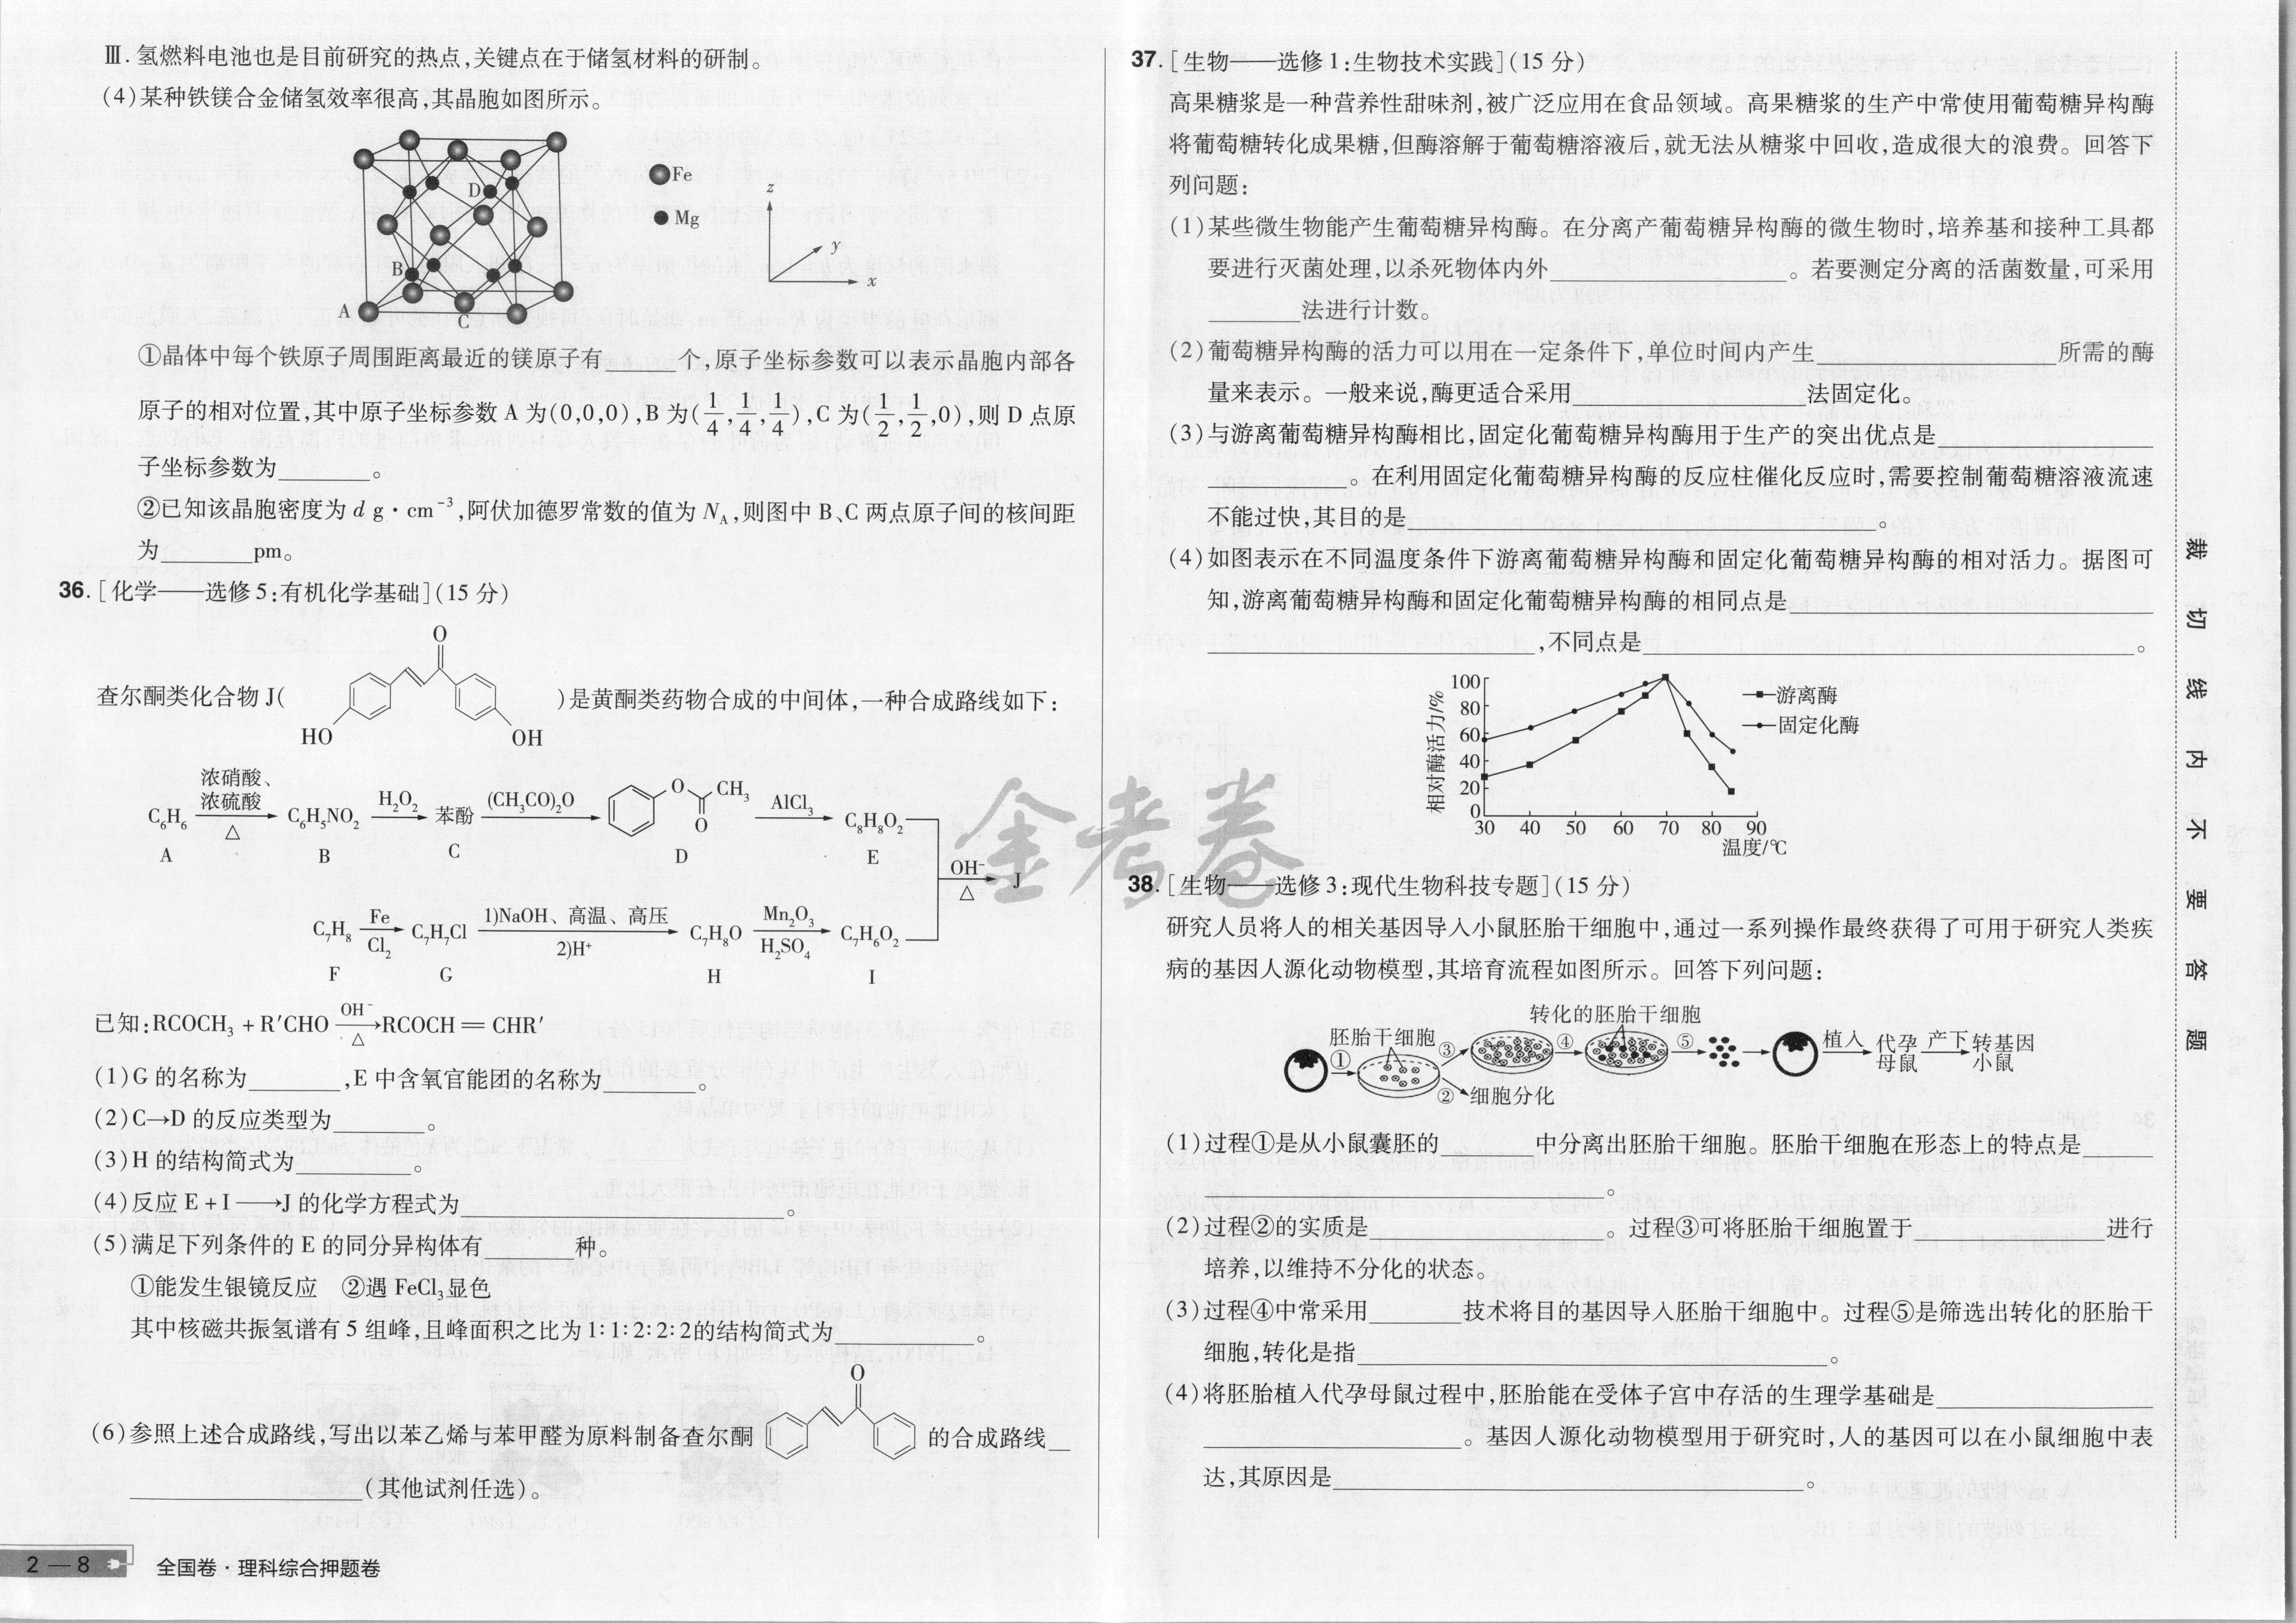 Ⅲ. 氢燃料电池也是目前研究的热点,关键点在于储氢材料的研制。
(4)某种铁镁合金储氢效率很高,其晶胞如图所示。
Fe
Mg
A
B
C
D
x
y
z
①晶体中每个铁原子周围距离最近的镁原子有______个,原子坐标参数可以表示晶胞内部各
原子的相对位置,其中原子坐标参数 A 为(0,0,0),B 为(1/4,1/4,1/4),C 为(1/2,1/2,0),则 D 点原
子坐标参数为______。
②已知该晶胞密度为 d g·cm⁻³,阿伏加德罗常数的值为 N_A,则图中 B、C 两点原子间的核间距
为______pm。
36. [化学——选修 5:有机化学基础](15 分)
查尔酮类化合物 J( HO O OH )是黄酮类药物合成的中间体,一种合成路线如下:
C₆H₆ 浓硝酸、浓硫酸 △ C₆H₅NO₂ H₂O₂ 苯酚 (CH₃CO)₂O O CH₃ O AlCl₃ C₈H₈O₂
A B C D E
OH⁻ △ J
C₇H₈ Fe Cl₂ C₇H₇Cl 1)NaOH、高温、高压 2)H⁺ C₇H₈O Mn₂O₃ H₂SO₄ C₇H₆O₂
F G H I
已知:RCOCH₃ + R′CHO OH⁻ △ →RCOCH＝CHR′
(1)G 的名称为______,E 中含氧官能团的名称为______。
(2)C→D 的反应类型为______。
(3)H 的结构简式为______。
(4)反应 E + I ——→J 的化学方程式为______。
(5)满足下列条件的 E 的同分异构体有______种。
①能发生银镜反应 ②遇 FeCl₃显色
其中核磁共振氢谱有 5 组峰,且峰面积之比为 1∶1∶2∶2∶2的结构简式为______。
(6)参照上述合成路线,写出以苯乙烯与苯甲醛为原料制备查尔酮 O 的合成路线__
______(其他试剂任选)。
2—8 全国卷·理科综合押题卷
37. [生物——选修 1:生物技术实践](15 分)
高果糖浆是一种营养性甜味剂,被广泛应用在食品领域。高果糖浆的生产中常使用葡萄糖异构酶
将葡萄糖转化成果糖,但酶溶解于葡萄糖溶液后,就无法从糖浆中回收,造成很大的浪费。回答下
列问题:
(1)某些微生物能产生葡萄糖异构酶。在分离产葡萄糖异构酶的微生物时,培养基和接种工具都
要进行灭菌处理,以杀死物体内外______。若要测定分离的活菌数量,可采用
______法进行计数。
(2)葡萄糖异构酶的活力可以用在一定条件下,单位时间内产生______所需的酶
量来表示。一般来说,酶更适合采用______法固定化。
(3)与游离葡萄糖异构酶相比,固定化葡萄糖异构酶用于生产的突出优点是______
______。在利用固定化葡萄糖异构酶的反应柱催化反应时,需要控制葡萄糖溶液流速
不能过快,其目的是______。
(4)如图表示在不同温度条件下游离葡萄糖异构酶和固定化葡萄糖异构酶的相对活力。据图可
知,游离葡萄糖异构酶和固定化葡萄糖异构酶的相同点是______
______,不同点是______。
相对酶活力/%
100
80
60
40
20
0
30 40 50 60 70 80 90
温度/℃
游离酶
固定化酶
38. [生物——选修 3:现代生物科技专题](15 分)
研究人员将人的相关基因导入小鼠胚胎干细胞中,通过一系列操作最终获得了可用于研究人类疾
病的基因人源化动物模型,其培育流程如图所示。回答下列问题:
转化的胚胎干细胞
胚胎干细胞
① ③ ④ ⑤ 植入 代孕母鼠 产下 转基因小鼠
② 细胞分化
(1)过程①是从小鼠囊胚的______中分离出胚胎干细胞。胚胎干细胞在形态上的特点是______
______。
(2)过程②的实质是______。过程③可将胚胎干细胞置于______进行
培养,以维持不分化的状态。
(3)过程④中常采用______技术将目的基因导入胚胎干细胞中。过程⑤是筛选出转化的胚胎干
细胞,转化是指______。
(4)将胚胎植入代孕母鼠过程中,胚胎能在受体子宫中存活的生理学基础是______
______。基因人源化动物模型用于研究时,人的基因可以在小鼠细胞中表
达,其原因是______。
裁切线内不要答题
金考卷